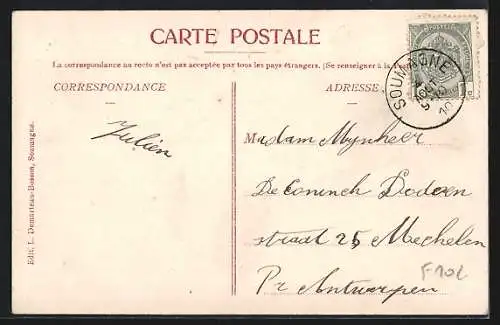 CARTE POSTALE
La correspondance au recto n'est pas acceptée par tous les pays étrangers. (Se renseigner à la
CORRESPONDANCE
ADRESSE
SOUMAGNE
10
Julien
Madam Mynheer
De Coninck Dodoen
straat 25 Mechelen
Pr Antwerpen
F102
Edit. L. Demarteau-Boseon, Soumagne.